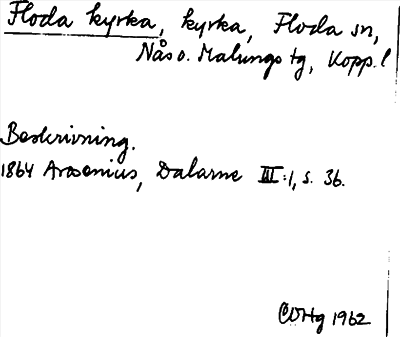 Floda kyrka, kyrka, Floda sn,
Nås o. Malungs tg, Kopp. l
Beskrivning.
1864 Arosenius, Dalarne III:1, s. 36.
1962